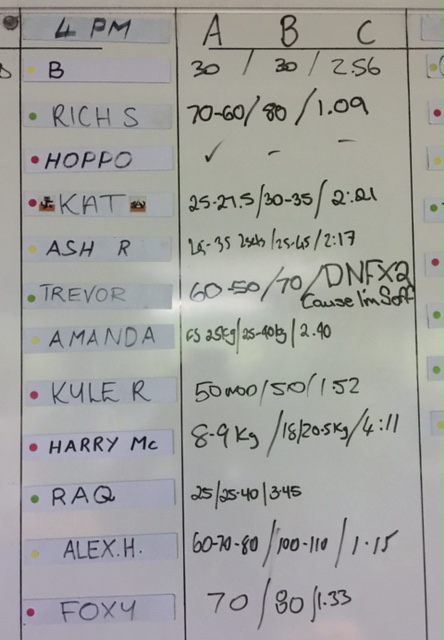 4 PM A B C
B 30 / 30 / 2.56
RICH S 70-60/ 80 / 1.09
HOPPO ✓ - -
KAT 25-27.5/30-35/ 2:21
ASH R 2sets /25-45/2:17
TREVOR 60-50/70/DNFX2
Cause I'm Soft
AMANDA 25kg/25-40kg/2.40
KYLE R 50 /50/1.52
HARRY Mc 8-9 Kg /18/20.5Kg/4:11
RAQ 25/25-40/3:45
ALEX.H. 60-70-80 /100-110 / 1.15
FOXY 70 / 80 /1.33